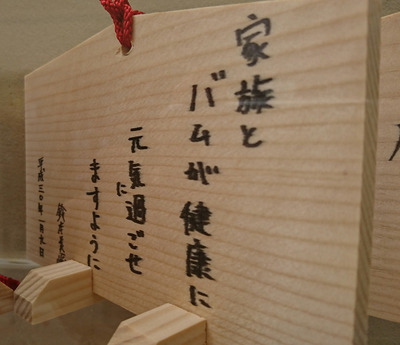 家族と
バムが健康に
元気に過ごせ
ますように
平成三〇年一月九日